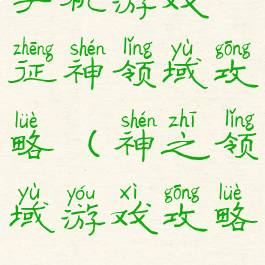 手机游戏
zhēng shén lǐng yù gōng
征神领域攻
lüè shén zhī lǐng
略（神之领
yù yóu xì gōng lüè
域游戏攻略